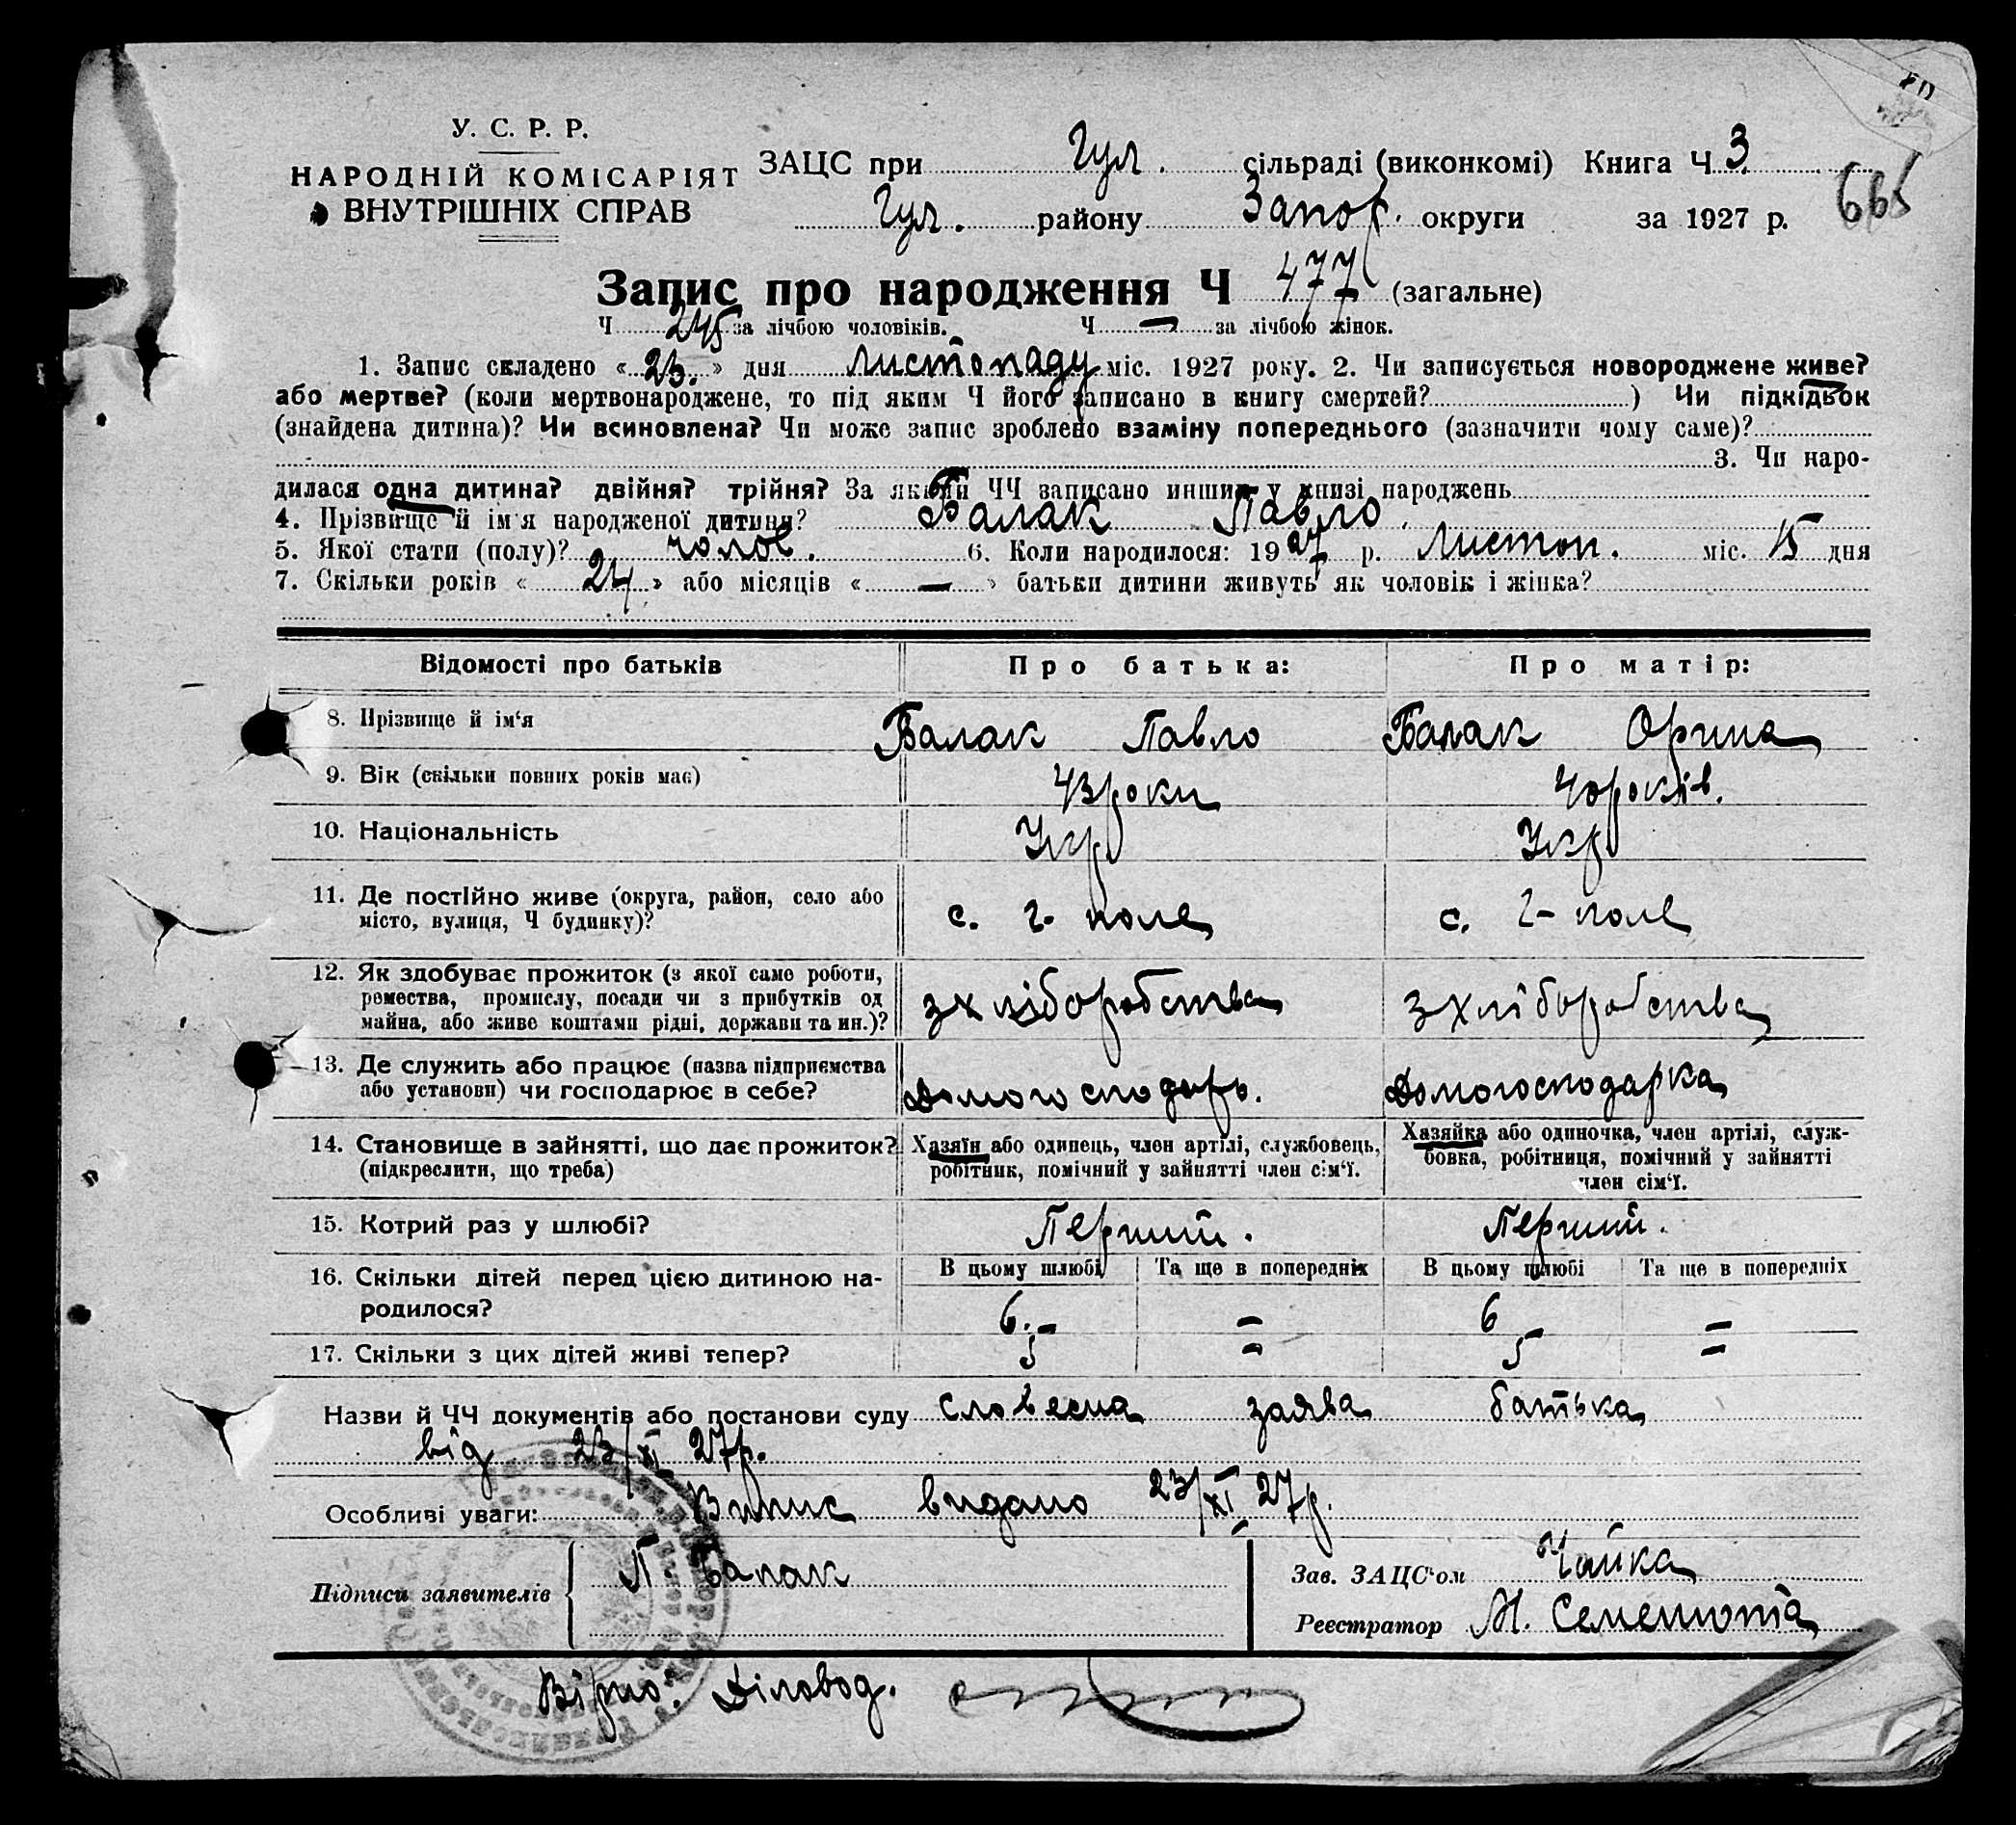 У. С. Р. Р.
НАРОДНІЙ КОМІСАРІЯТ
ВНУТРІШНІХ СПРАВ
ЗАЦС при Гул. сільраді (виконкомі) Книга Ч 3
Гул. району Запор. округи за 1927 р.
665
Запис про народження Ч 477 (загальне)
Ч 245 за лічбою чоловіків. Ч — за лічбою жінок.
1. Запис складено «23.» дня Листопаду міс. 1927 року. 2. Чи записується новороджене живе?
або мертве? (коли мертвонароджене, то під яким Ч його записано в книгу смертей?) Чи підкідьок
(знайдена дитина)? Чи всиновлена? Чи може запис зроблено взаміну попереднього (зазначити чому саме)?
3. Чи наро-
дилася одна дитина? двійня? трійня? За якими ЧЧ записано инших у книзі народжень
4. Прізвище й ім'я народженої дитини? Балак Павло.
5. Якої стати (полу)? чолов. 6. Коли народилося: 1927 р. Листоп. міс. 15 дня
7. Скільки років «24» або місяців «—» батьки дитини живуть як чоловік і жінка?
Відомості про батьків Про батька: Про матір:
8. Прізвище й ім'я Балак Павло Балак Орина
9. Вік (скільки повних років має) 43 роки 40 років.
10. Національність Укр Укр
11. Де постійно живе (округа, район, село або
місто, вулиця, Ч будинку)? с. Г- поле с. Г- поле
12. Як здобуває прожиток (з якої саме роботи,
ремества, промислу, посади чи з прибутків од
майна, або живе коштами рідні, держави та ин.)? з хліборобства з хліборобства
13. Де служить або працює (назва підприємства
або установи) чи господарює в себе? Домогосподарь. Домогосподарка
14. Становище в зайнятті, що дає прожиток?
(підкреслити, що треба)
Хазяїн або одинець, член артілі, службовець,
робітник, помічний у зайнятті член сім'ї.
Хазяйка або одиночка, член артілі, служ-
бовка, робітниця, помічний у зайнятті
член сім'ї.
15. Котрий раз у шлюбі? Перший. Перший.
16. Скільки дітей перед цією дитиною на-
родилося?
В цьому шлюбі Та ще в попередніх В цьому шлюбі Та ще в попередніх
6. – 6 –
17. Скільки з цих дітей живі тепер? 5 = 5 =
Назви й ЧЧ документів або постанови суду Словесна заява батька
від 23/XI 27р.
Особливі уваги: Випис видано 23/XI 27р.
Підписи заявителів П. Балак
Зав. ЗАЦС'ом Чайка
Реєстратор М. Семенюта
Вірно: Діловод.